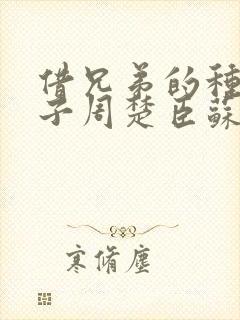 借兄弟的種
子周楚臣蘇
寒脩塵